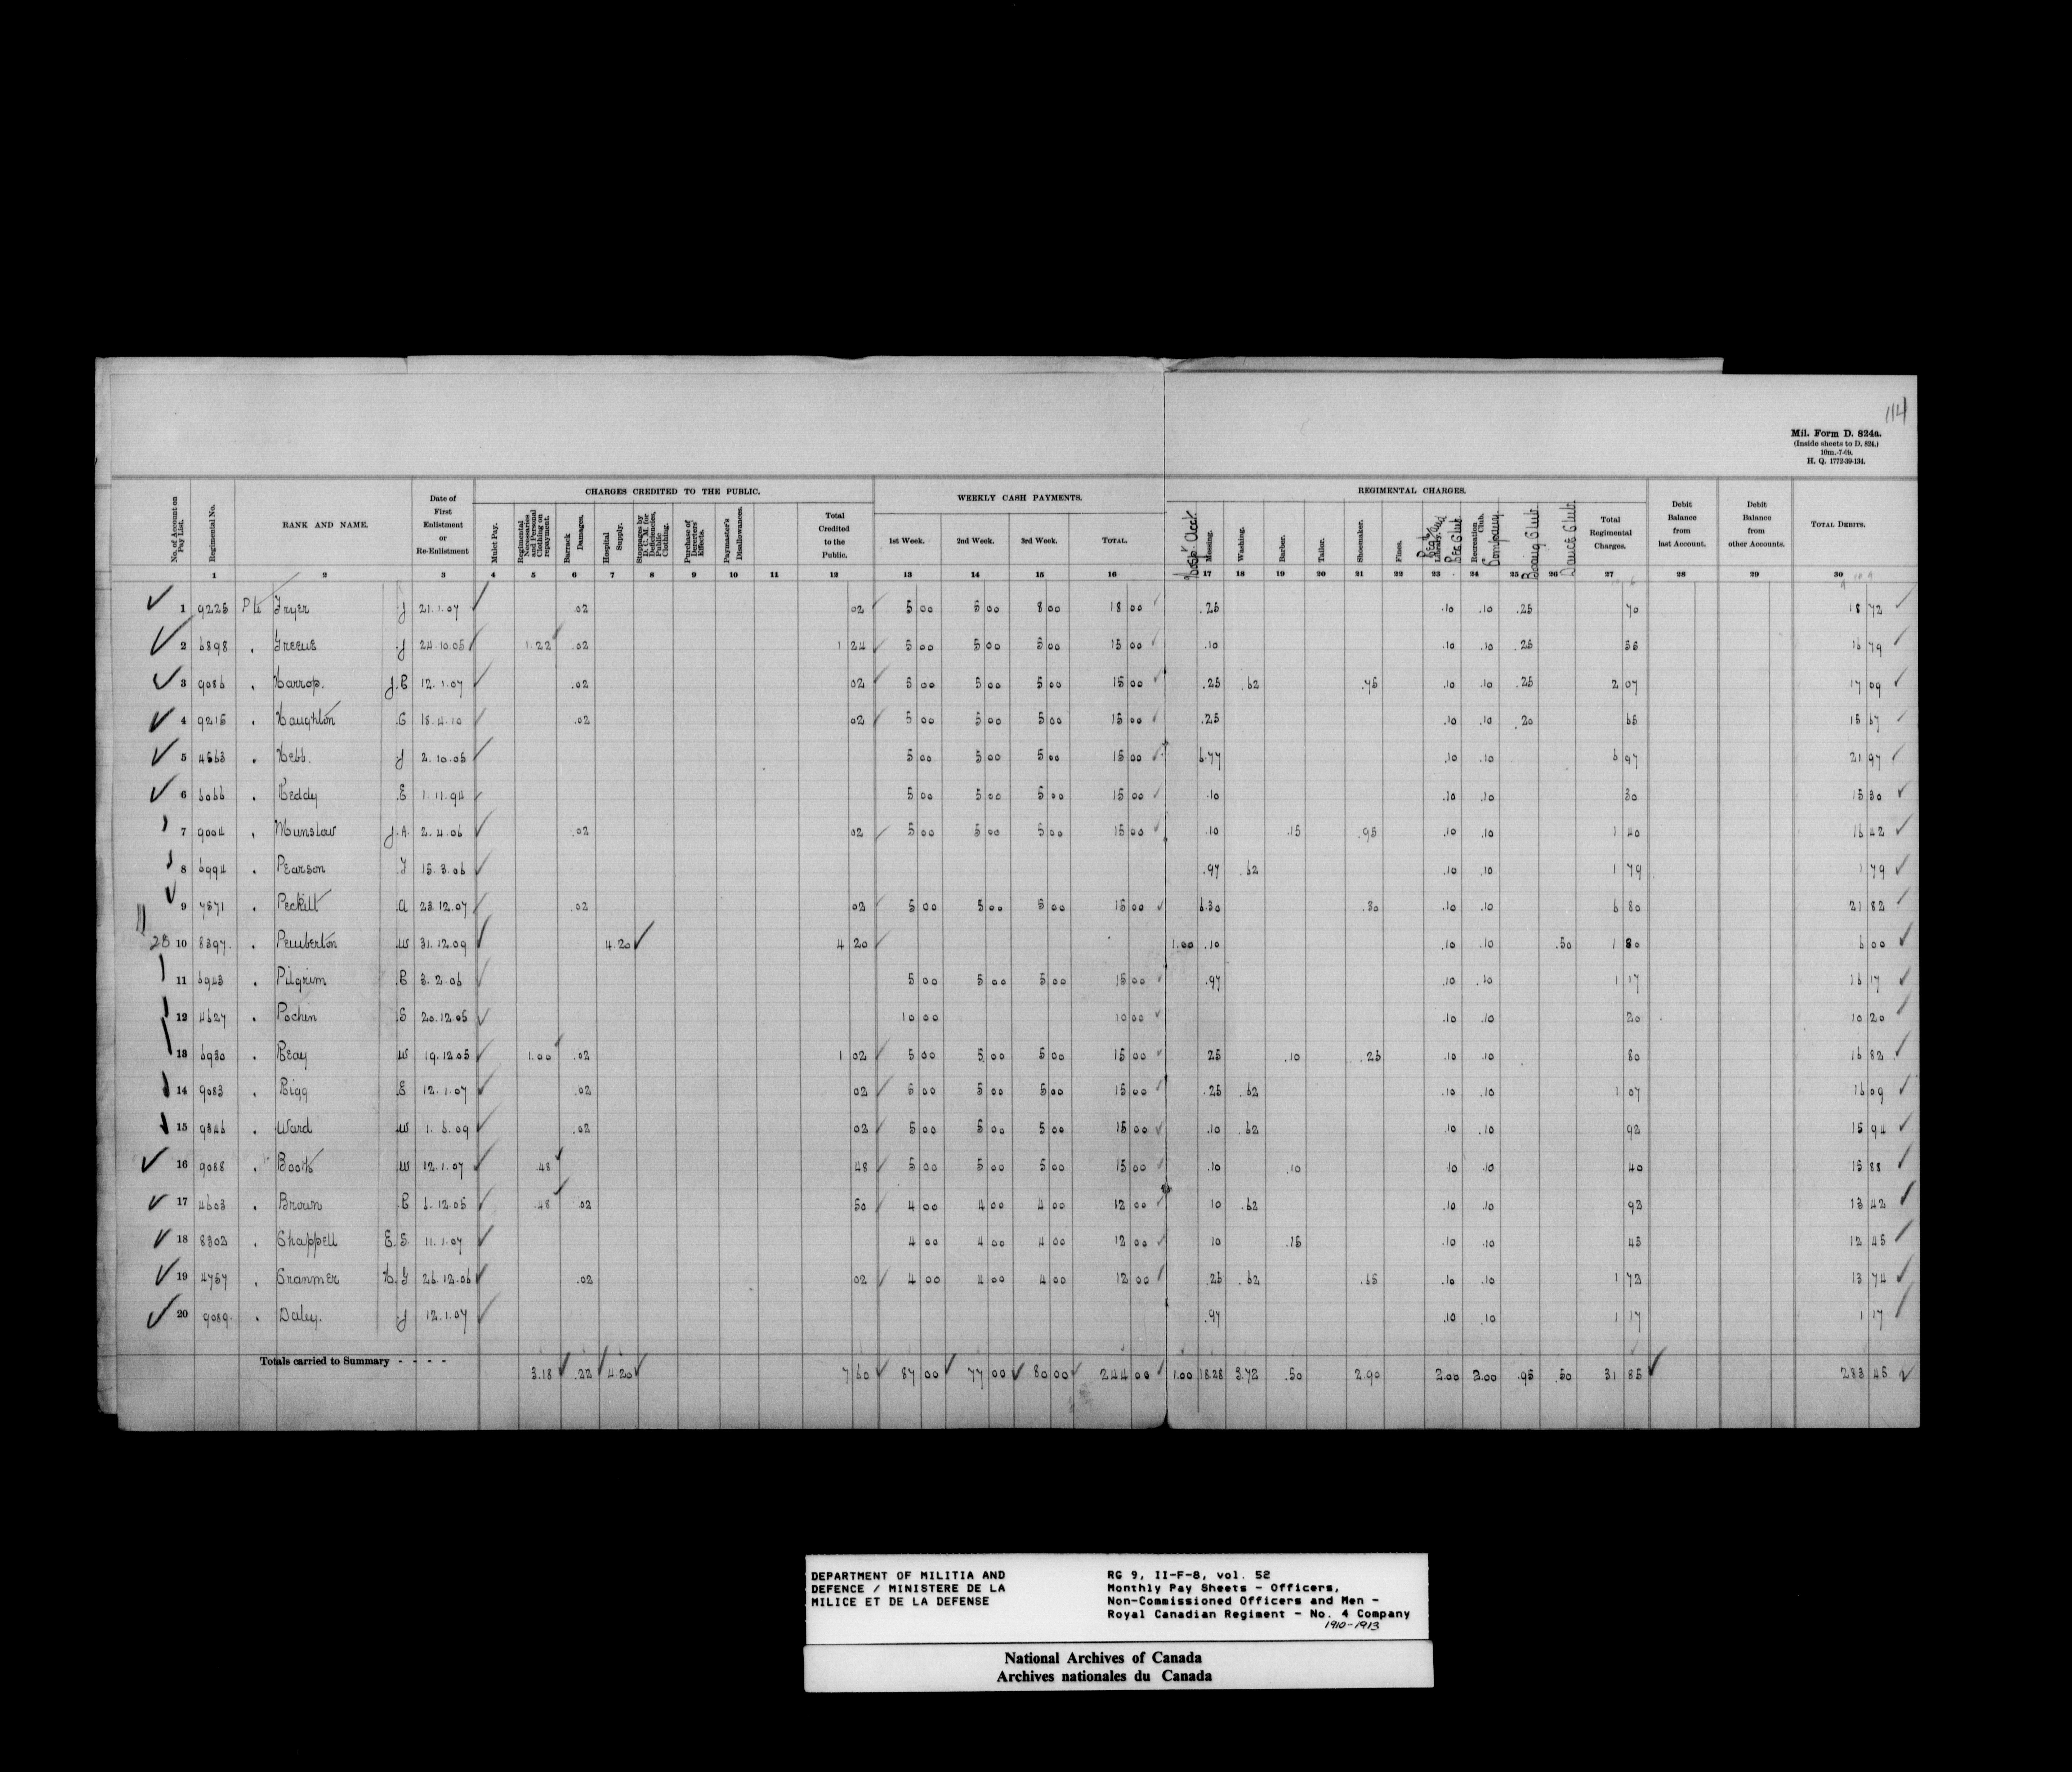 114
Mil. Form D. 824a.
(Inside sheets to D. 824.)
10m.-7-09.
H. Q. 1772-39-134.
CHARGES CREDITED TO THE PUBLIC. WEEKLY CASH PAYMENTS. REGIMENTAL CHARGES.
No. of Account on Pay List. Regimental No. RANK AND NAME. Date of First Enlistment or Re-Enlistment Mulct Pay. Regimental Necessaries and Personal Clothing on repayment. Barrack Damages. Hospital Supply. Stoppages by D. C. M. for Deficiencies, Public Clothing. Purchase of Deserters' Effects. Paymaster's Disallowances. Total Credited to the Public. 1st Week. 2nd Week. 3rd Week. TOTAL. Messing. Washing. Barber. Tailor. Shoemaker. Fines. Library. Rec Club. Recreation Club. Company. Boxing Club. Dance Club. Total Regimental Charges. Debit Balance from last Account. Debit Balance from other Accounts. TOTAL DEBITS.
1 2 3 4 5 6 7 8 9 10 11 12 13 14 15 16 17 18 19 20 21 22 23 24 25 26 27 28 29 30
1 9225 Pte Fryer J 21.1.07 .02 02 5 00 5 00 8 00 18 00 .25 .10 .10 .25 70 18 72
2 6898 " Greene J 24.10.05 1.22 .02 1 24 5 00 5 00 5 00 15 00 .10 .10 .10 .25 55 16 79
3 9086 " Harrop. J.C 12.1.07 .02 02 5 00 5 00 5 00 15 00 .25 .62 .75 .10 .10 .25 2 07 17 09
4 9215 " Haughton C 18.4.10 .02 02 5 00 5 00 5 00 15 00 .25 .10 .10 .20 65 15 67
5 4563 " Hebb. J 2.10.05 5 00 5 00 5 00 15 00 6.77 .10 .10 6 97 21 97
6 6066 " Keddy E 1.11.94 5 00 5 00 5 00 15 00 .10 .10 .10 30 15 30
7 9004 " Munslow J.A. 2.4.06 .02 02 5 00 5 00 5 00 15 00 .10 .15 .95 .10 .10 1 40 16 42
8 6994 " Pearson T 15.3.06 .97 .62 .10 .10 1 79 1 79
9 7571 " Peckitt A 23.12.07 .02 02 5 00 5 00 5 00 15 00 6.30 .30 .10 .10 6 80 21 82
28 10 8397 " Pemberton W 31.12.09 4.20 4 20 1.00 .10 .10 .10 .50 1 80 6 00
11 6943 " Pilgrim C 3.2.06 5 00 5 00 5 00 15 00 .97 .10 .10 1 17 16 17
12 4627 " Pochin S 20.12.05 10 00 10 00 .10 .10 20 10 20
13 6930 " Reay W 19.12.05 1.00 .02 1 02 5 00 5 00 5 00 15 00 25 .10 .25 .10 .10 80 16 82
14 9083 " Rigg E 12.1.07 .02 02 5 00 5 00 5 00 15 00 .25 .62 .10 .10 1 07 16 09
15 9346 " Ward W 1.6.09 .02 02 5 00 5 00 5 00 15 00 .10 .62 .10 .10 92 15 94
16 9088 " Booth W 12.1.07 .48 48 5 00 5 00 5 00 15 00 .10 .10 .10 .10 40 15 88
17 4603 " Brown C 6.12.05 .48 .02 50 4 00 4 00 4 00 12 00 10 .62 .10 .10 92 13 42
18 8302 " Chappell E.S. 11.1.07 4 00 4 00 4 00 12 00 10 .15 .10 .10 45 12 45
19 4757 " Cranmer H.G 26.12.06 .02 02 4 00 4 00 4 00 12 00 .25 .62 .65 .10 .10 1 72 13 74
20 9089 " Daley. J 12.1.07 .97 .10 .10 1 17 1 17
Totals carried to Summary - - - - 3.18 .22 4.20 7 60 87 00 77 00 80 00 244 00 1.00 18.28 3.72 .50 2.90 2.00 2.00 .95 .50 31 85 283 45
DEPARTMENT OF MILITIA AND
DEFENCE / MINISTERE DE LA
MILICE ET DE LA DEFENSE
RG 9, II-F-8, vol. 52
Monthly Pay Sheets - Officers,
Non-Commissioned Officers and Men -
Royal Canadian Regiment - No. 4 Company
1910-1913
National Archives of Canada
Archives nationales du Canada